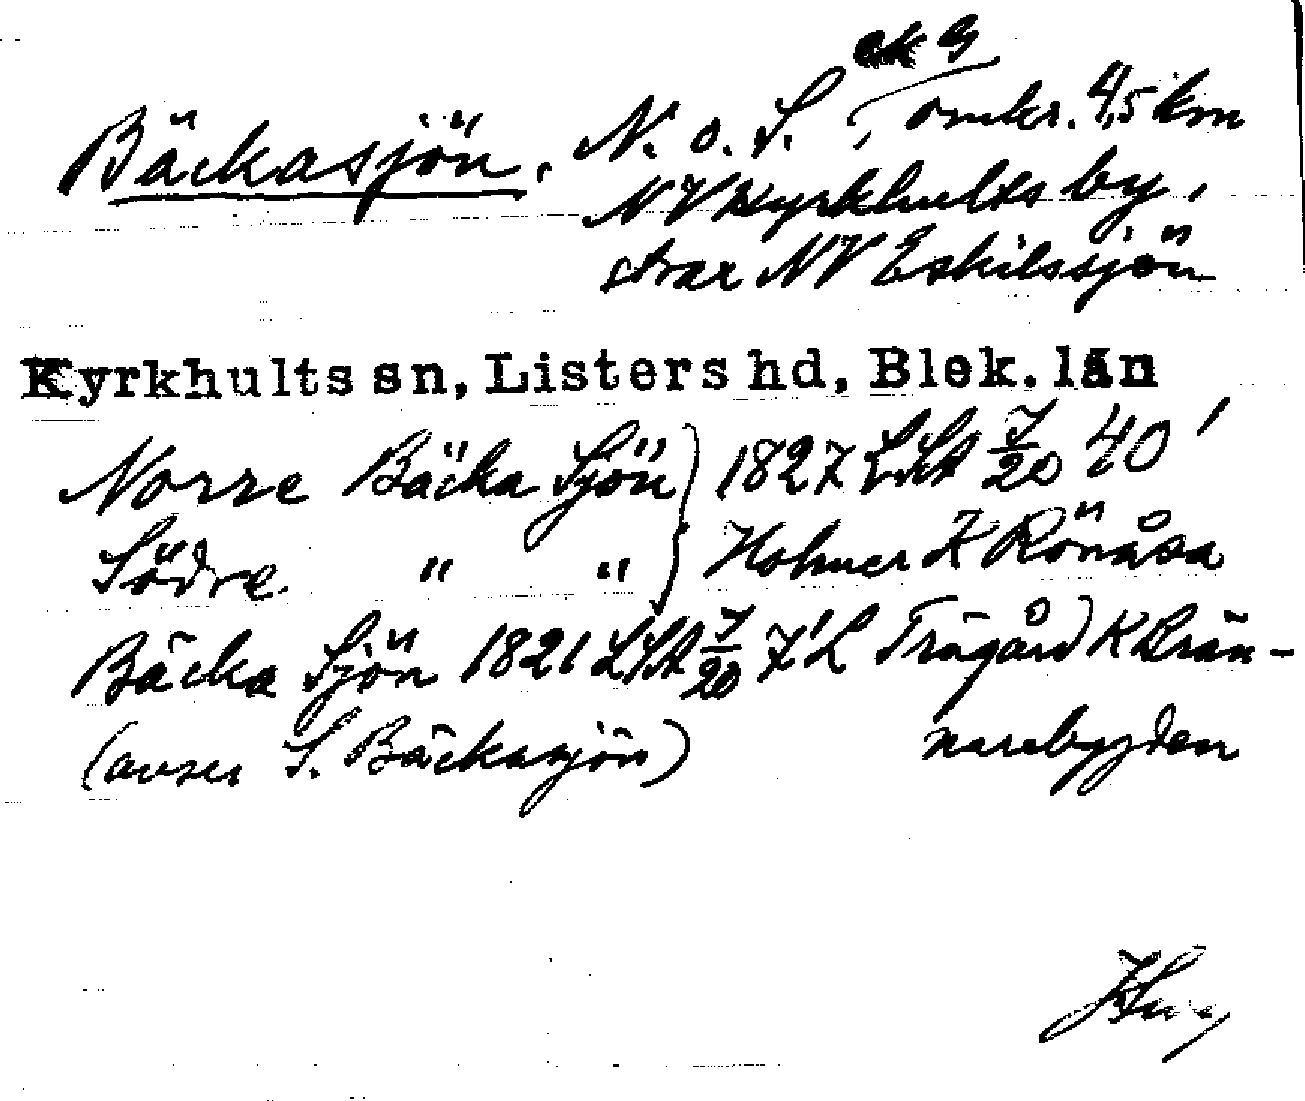 ek G
Bäckasjön, N. o. S., omkr. 4,5 km
NV Kyrkhults by,
strax NV Eskilssjön
Kyrkhults sn, Listers hd, Blek. län
Norre Bäcka Sjön } 1827 LSA 7/20 40'
Södre " " } Holmer K Rönåsa
Bäcka Sjön 1821 LSA 7/20 7'L Trägård K Brän-
(avser S. Bäckasjön) narebygden